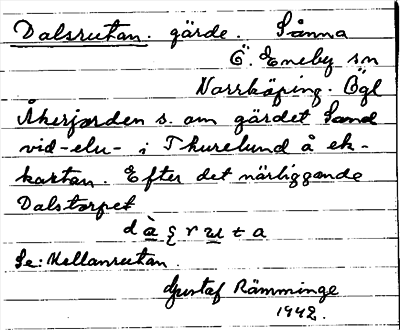 Dalsrutan. gärde. Sånna
Ö. Eneby sn
Norrköping. Ögl
Åkerjorden s. om gärdet Sand
vid -elu- i Thurelund å ek-
kartan. Efter det närliggande
Dalstorpet
Se: Mellanrutan.
Gustaf Rämminge
1942.